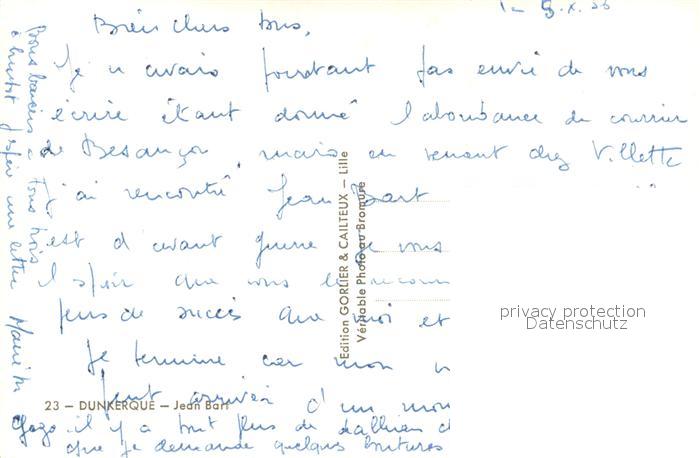 Le 9.X.56
Bien chers tous,
Je n'avais pourtant pas envie de vous
écrire étant donné l'abondance du courrier
de Besançon, mais en venant chez Villette
j'ai rencontré Jean Bart
est d'avant guerre je vous
J'espère que vous le
plus de succès que moi et
Je termine car mon
peut arriver d'un mom
il y a tout plus de
que je demande quelques
Bons baisers à tous trois
à bientôt j'espère une lettre
23 — DUNKERQUE — Jean Bart
Edition GORLIER & CAILTEUX — Lille
Véritable Photo au Bromure
privacy protection
Datenschutz